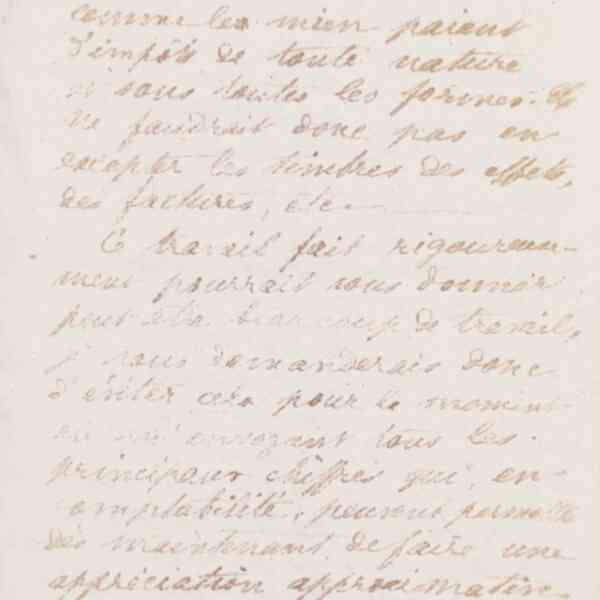 comme les mien paient
d'impôts de toute nature
sous toutes les formes. Il
ne faudrait donc pas en
excepter les timbres des effets,
des factures, etc
Ce travail fait rigoureuse-
ment pourrait vous donner
peut etre beaucoup de travail,
je vous demanderais donc
d'éviter cela pour le moment
en m'envoyant tous les
principaux chiffres qui, en
comptabilité, peuvent permettre
dès maintenant de faire une
appréciation approximative